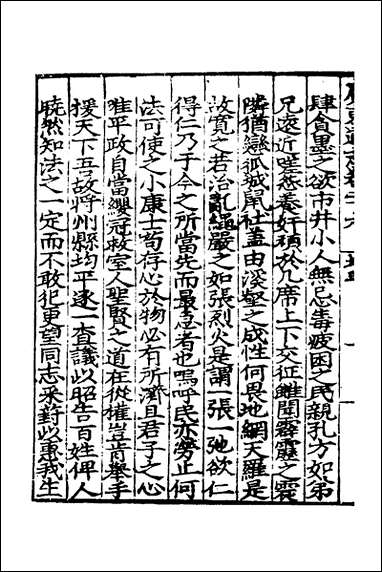 肆貪墨之欲市井小人無忌毒疲困之民親孔方如弟
兄遠近嗟怨養奸頑於几席上下交征雖聞雷霆之震
隣猶戀孤城鼠社蓋由溪壑之成性何畏地網天羅是
故寬之若治亂繩嚴之如張烈火是謂一張一弛欲仁
得仁乃于今之所當先而最急者也嗚呼民亦勞止何
法可使之小康士苟存心於物必有所濟且君子之心
惟平政自當纓冠救室人聖賢之道在從權豈肯舉手
援天下吾故將州縣均平逐一查議以昭告百姓俾人
曉然知法之一定而不敢犯更望同志釆葑以惠我生